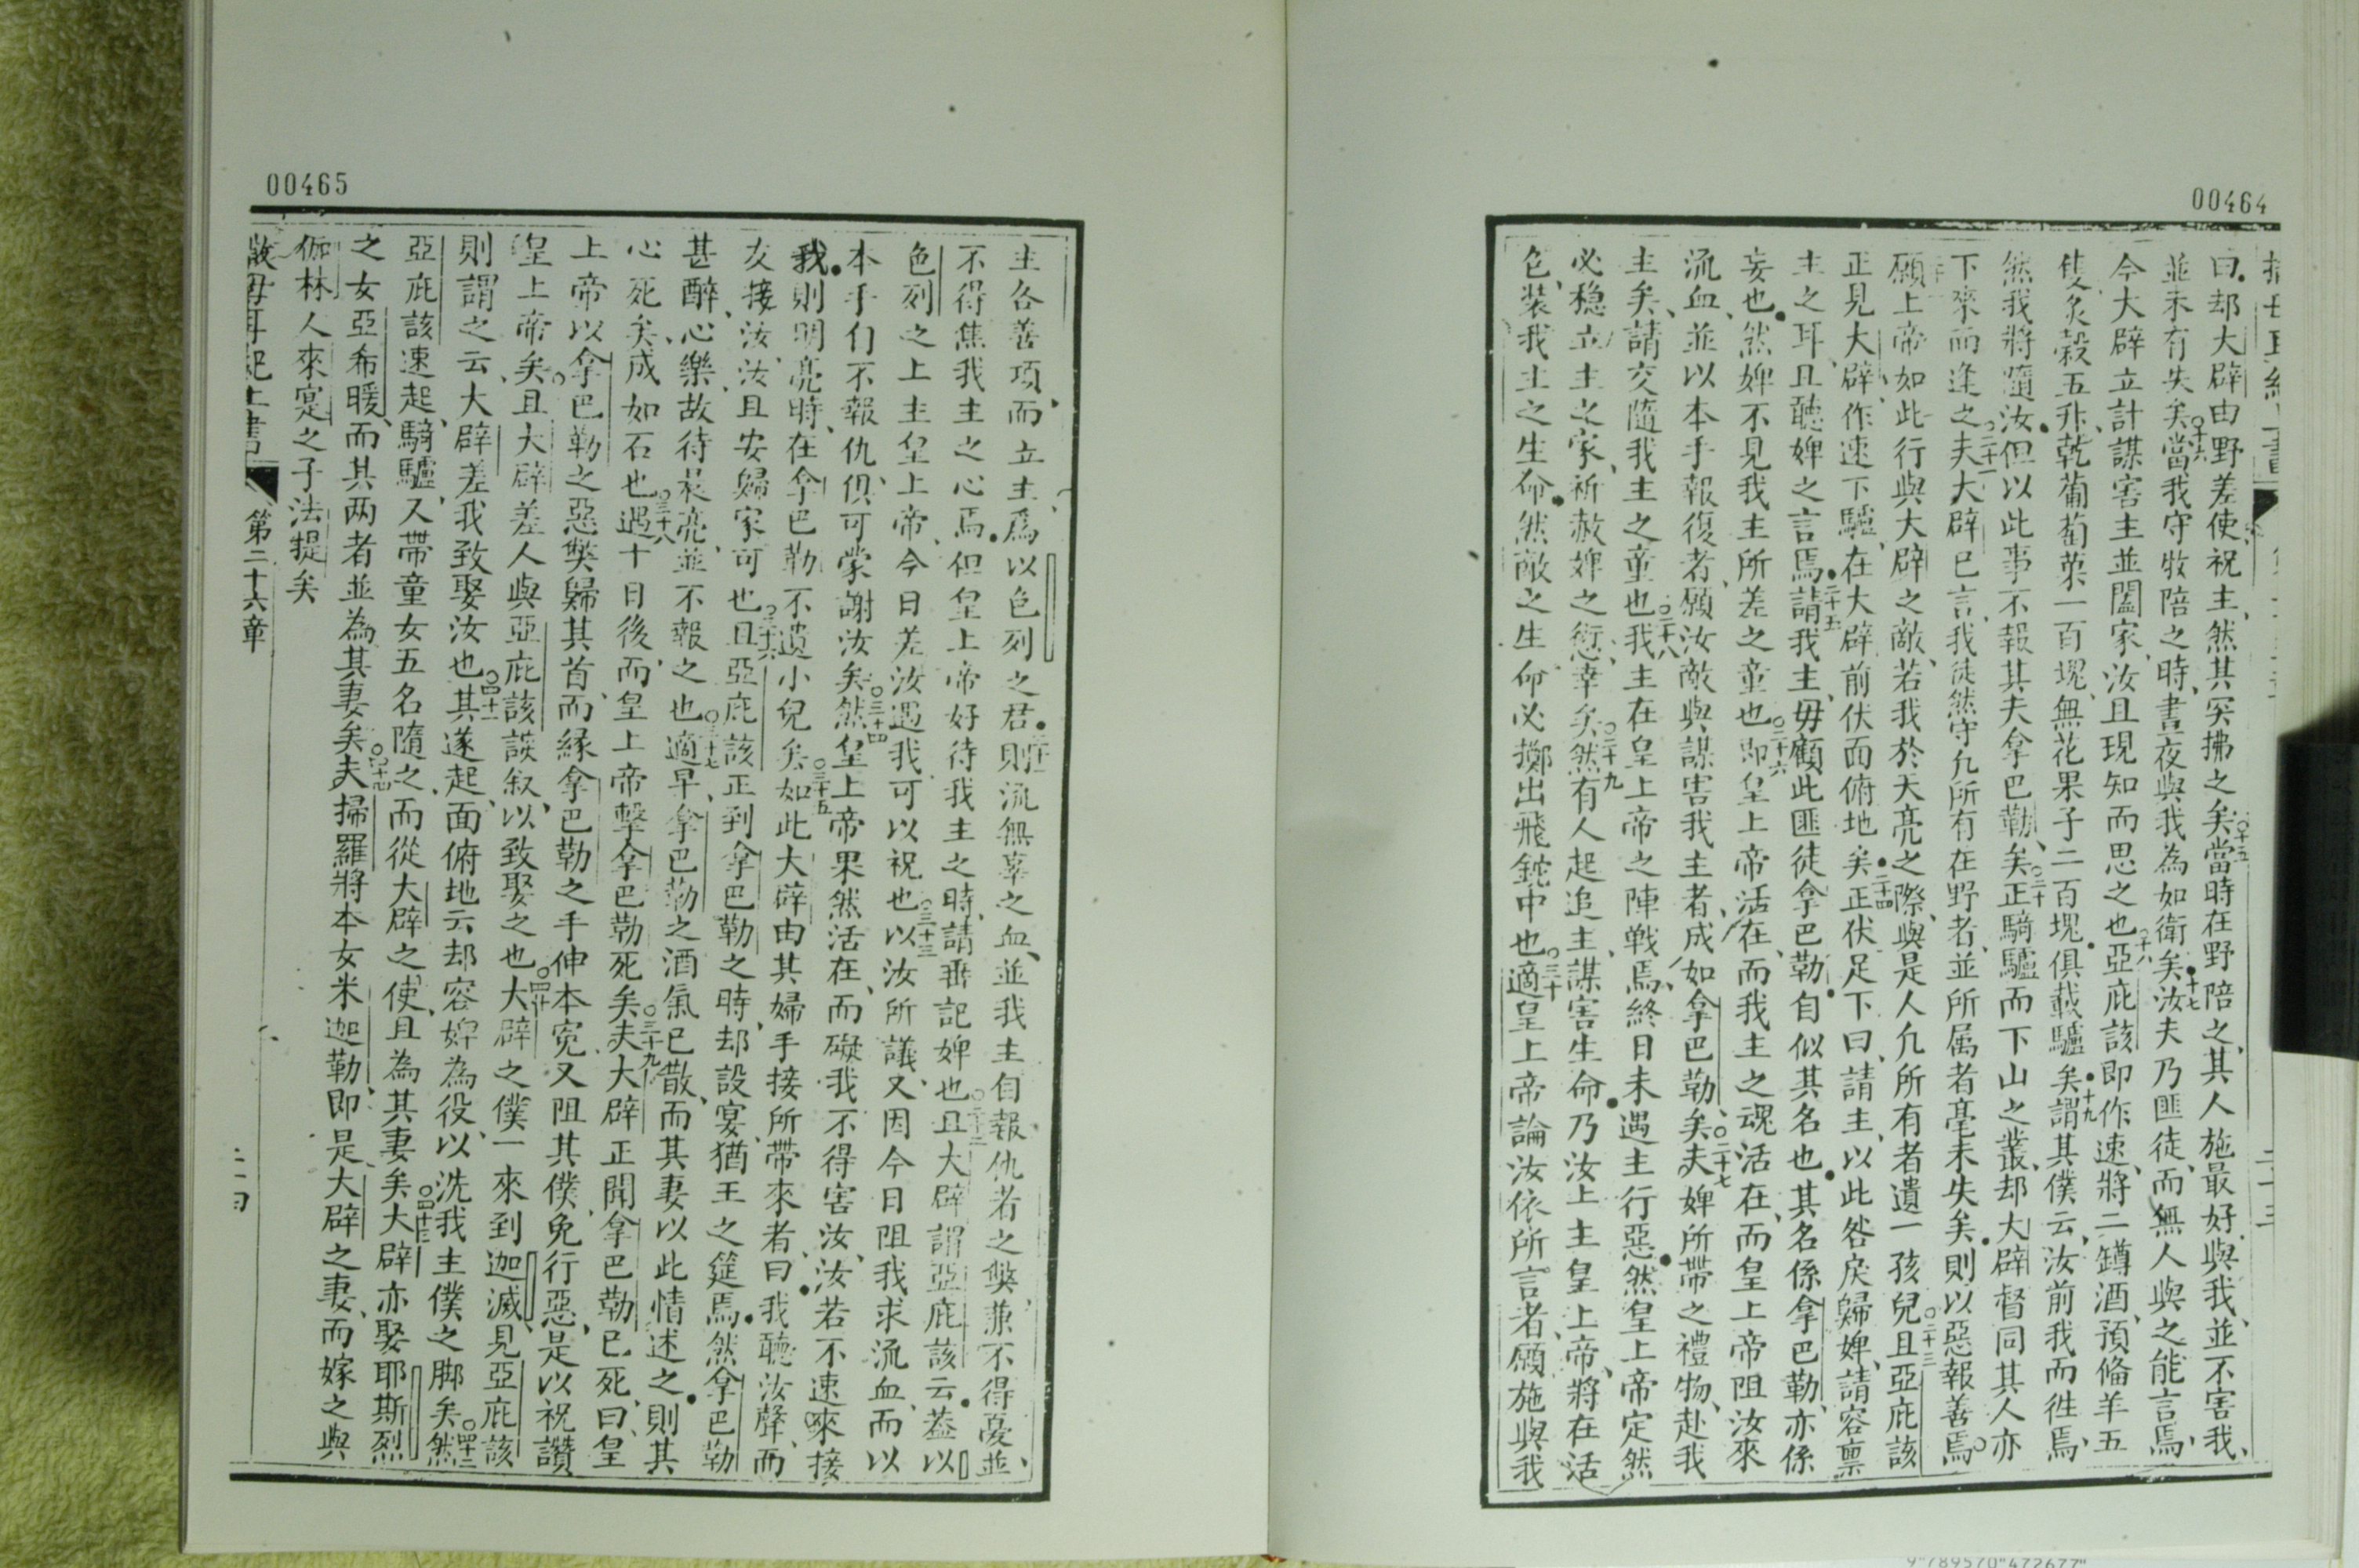 00464
曰却大辟由野差使祝主然其突拂之矣○十五當時在野陪之其人施最好與我並不害我
並未有失矣○十六當我守牧陪之時晝夜與我為如衛矣○十七汝夫乃匪徒而無人與之能言焉
今大辟立計謀害主並闔家汝且現知而思之也○十八亞庇該即作速將二罇酒預偹羊五
隻炙穀五升乾葡萄菓一百塊無花果子二百塊俱載驢矣○十九謂其僕云汝前我而徃焉
然我將隨汝但以此事不報其夫拿巴勒矣○二十正騎驢而下山之叢却大辟督同其人亦
下來而逢之○二十一夫大辟已言我徒然守凡所有在野者並所属者毫未失矣則以惡報善焉
願上帝如此行與大辟之敵若我於天亮之際與是人凡所有者遺一孩兒○二十三且亞庇該
正見大辟作速下驢在大辟前伏面俯地矣○二十四正伏足下曰請主以此咎戾歸婢請容禀
主之耳且聽婢之言焉○二十五請我主毋顧此匪徒拿巴勒自似其名也其名係拿巴勒亦係
妄也然婢不見我主所差之童也○二十六即皇上帝活在而我主之魂活在而皇上帝阻汝來
流血並以本手報復者願汝敵與謀害我主者成如拿巴勒矣○二十七夫婢所帶之禮物赴我
主矣請交隨我主之童也○二十八我主在皇上帝之陣戰焉終日未遇主行惡然皇上帝定然
必穏立主之家祈赦婢之愆幸矣○二十九然有人起追主謀害生命乃汝上主皇上帝將在活
包裝我主之生命然敵之生命必擲出飛鉈中也○三十適皇上帝論汝依所言者願施與我
00465
主各善項而立主爲以色列之君○三十一則流無辜之血並我主自報仇若之獘兼不得憂並
不得焦我主之心焉但皇上帝好待我主之時請垂記婢也○三十二且大辟謂亞庇該云葢以
色列之上主皇上帝今日差汝遇我可以祝也○三十三以汝所議又因今日阻我求流血而以
本手们不報仇俱可蒙謝汝矣○三十四然皇上帝果然活在而礙我不得害汝汝若不速來接
我則明亮時在拿巴勒不遺小兒矣○三十五如此大辟由其婦手接所帶來者曰我聽汝聲而
友接汝汝且安歸家可也○三十六且亞庇該正到拿巴勒之時却設宴猶王之筵焉然拿巴勒
甚醉心樂故待晨亮並不報之也○三十七適早拿巴勒之酒氣已散而其妻以此情述之則其
心死矣成如石也○三十八遇十日後而皇上帝擊拿巴勒死矣○三十九夫大辟正聞拿巴勒已死曰皇
上帝以拿巴勒之惡獘歸其首而緣拿巴勒之手伸本寃又阻其僕免行惡是以祝讚
皇上帝矣且大辟差人與亞庇該談叙以致娶之也○四十大辟之僕一來到迦滅見亞庇該
則謂之云大辟差我致娶汝也○四十一其遂起面俯地云却容婢為役以洗我主僕之脚矣○四十二然
亞庇該速起騎驢又帶童女五名隨之而從大辟之使且為其妻矣○四十三大辟亦娶耶斯烈
之女亞希暖而其两者並為其妻矣○四十四夫掃羅將本女米迦勒即是大辟之妻而嫁之與
伽林人來寔之子法提矣
撒母耳紀上書 第二十六章